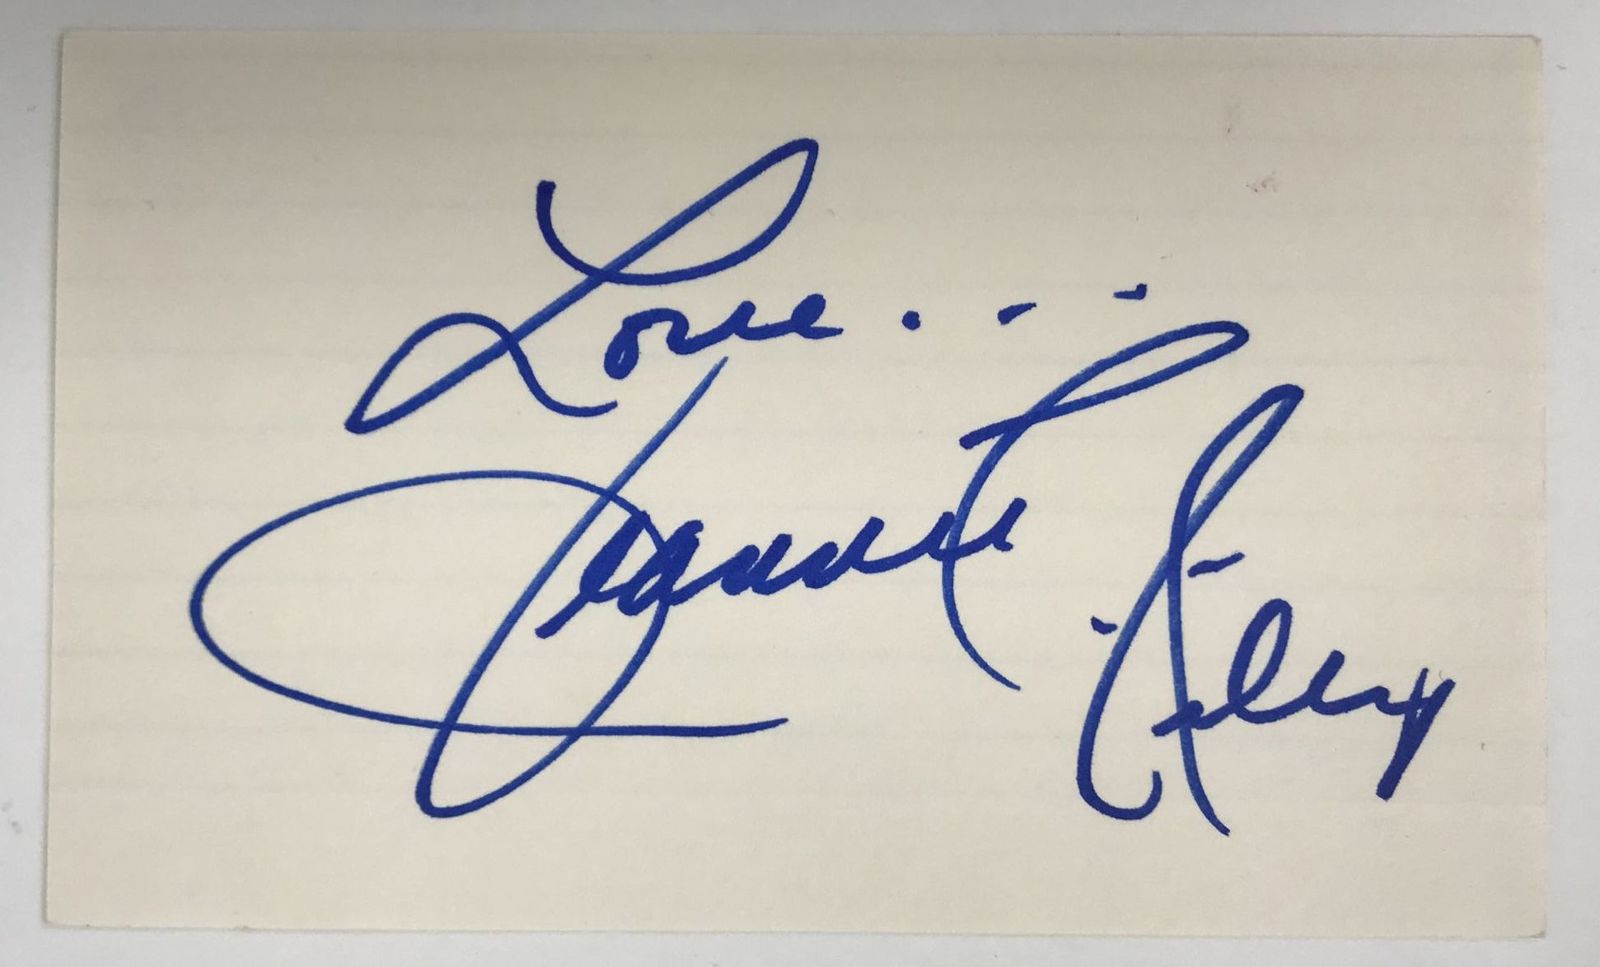 Love...
Jeannie C. Riley